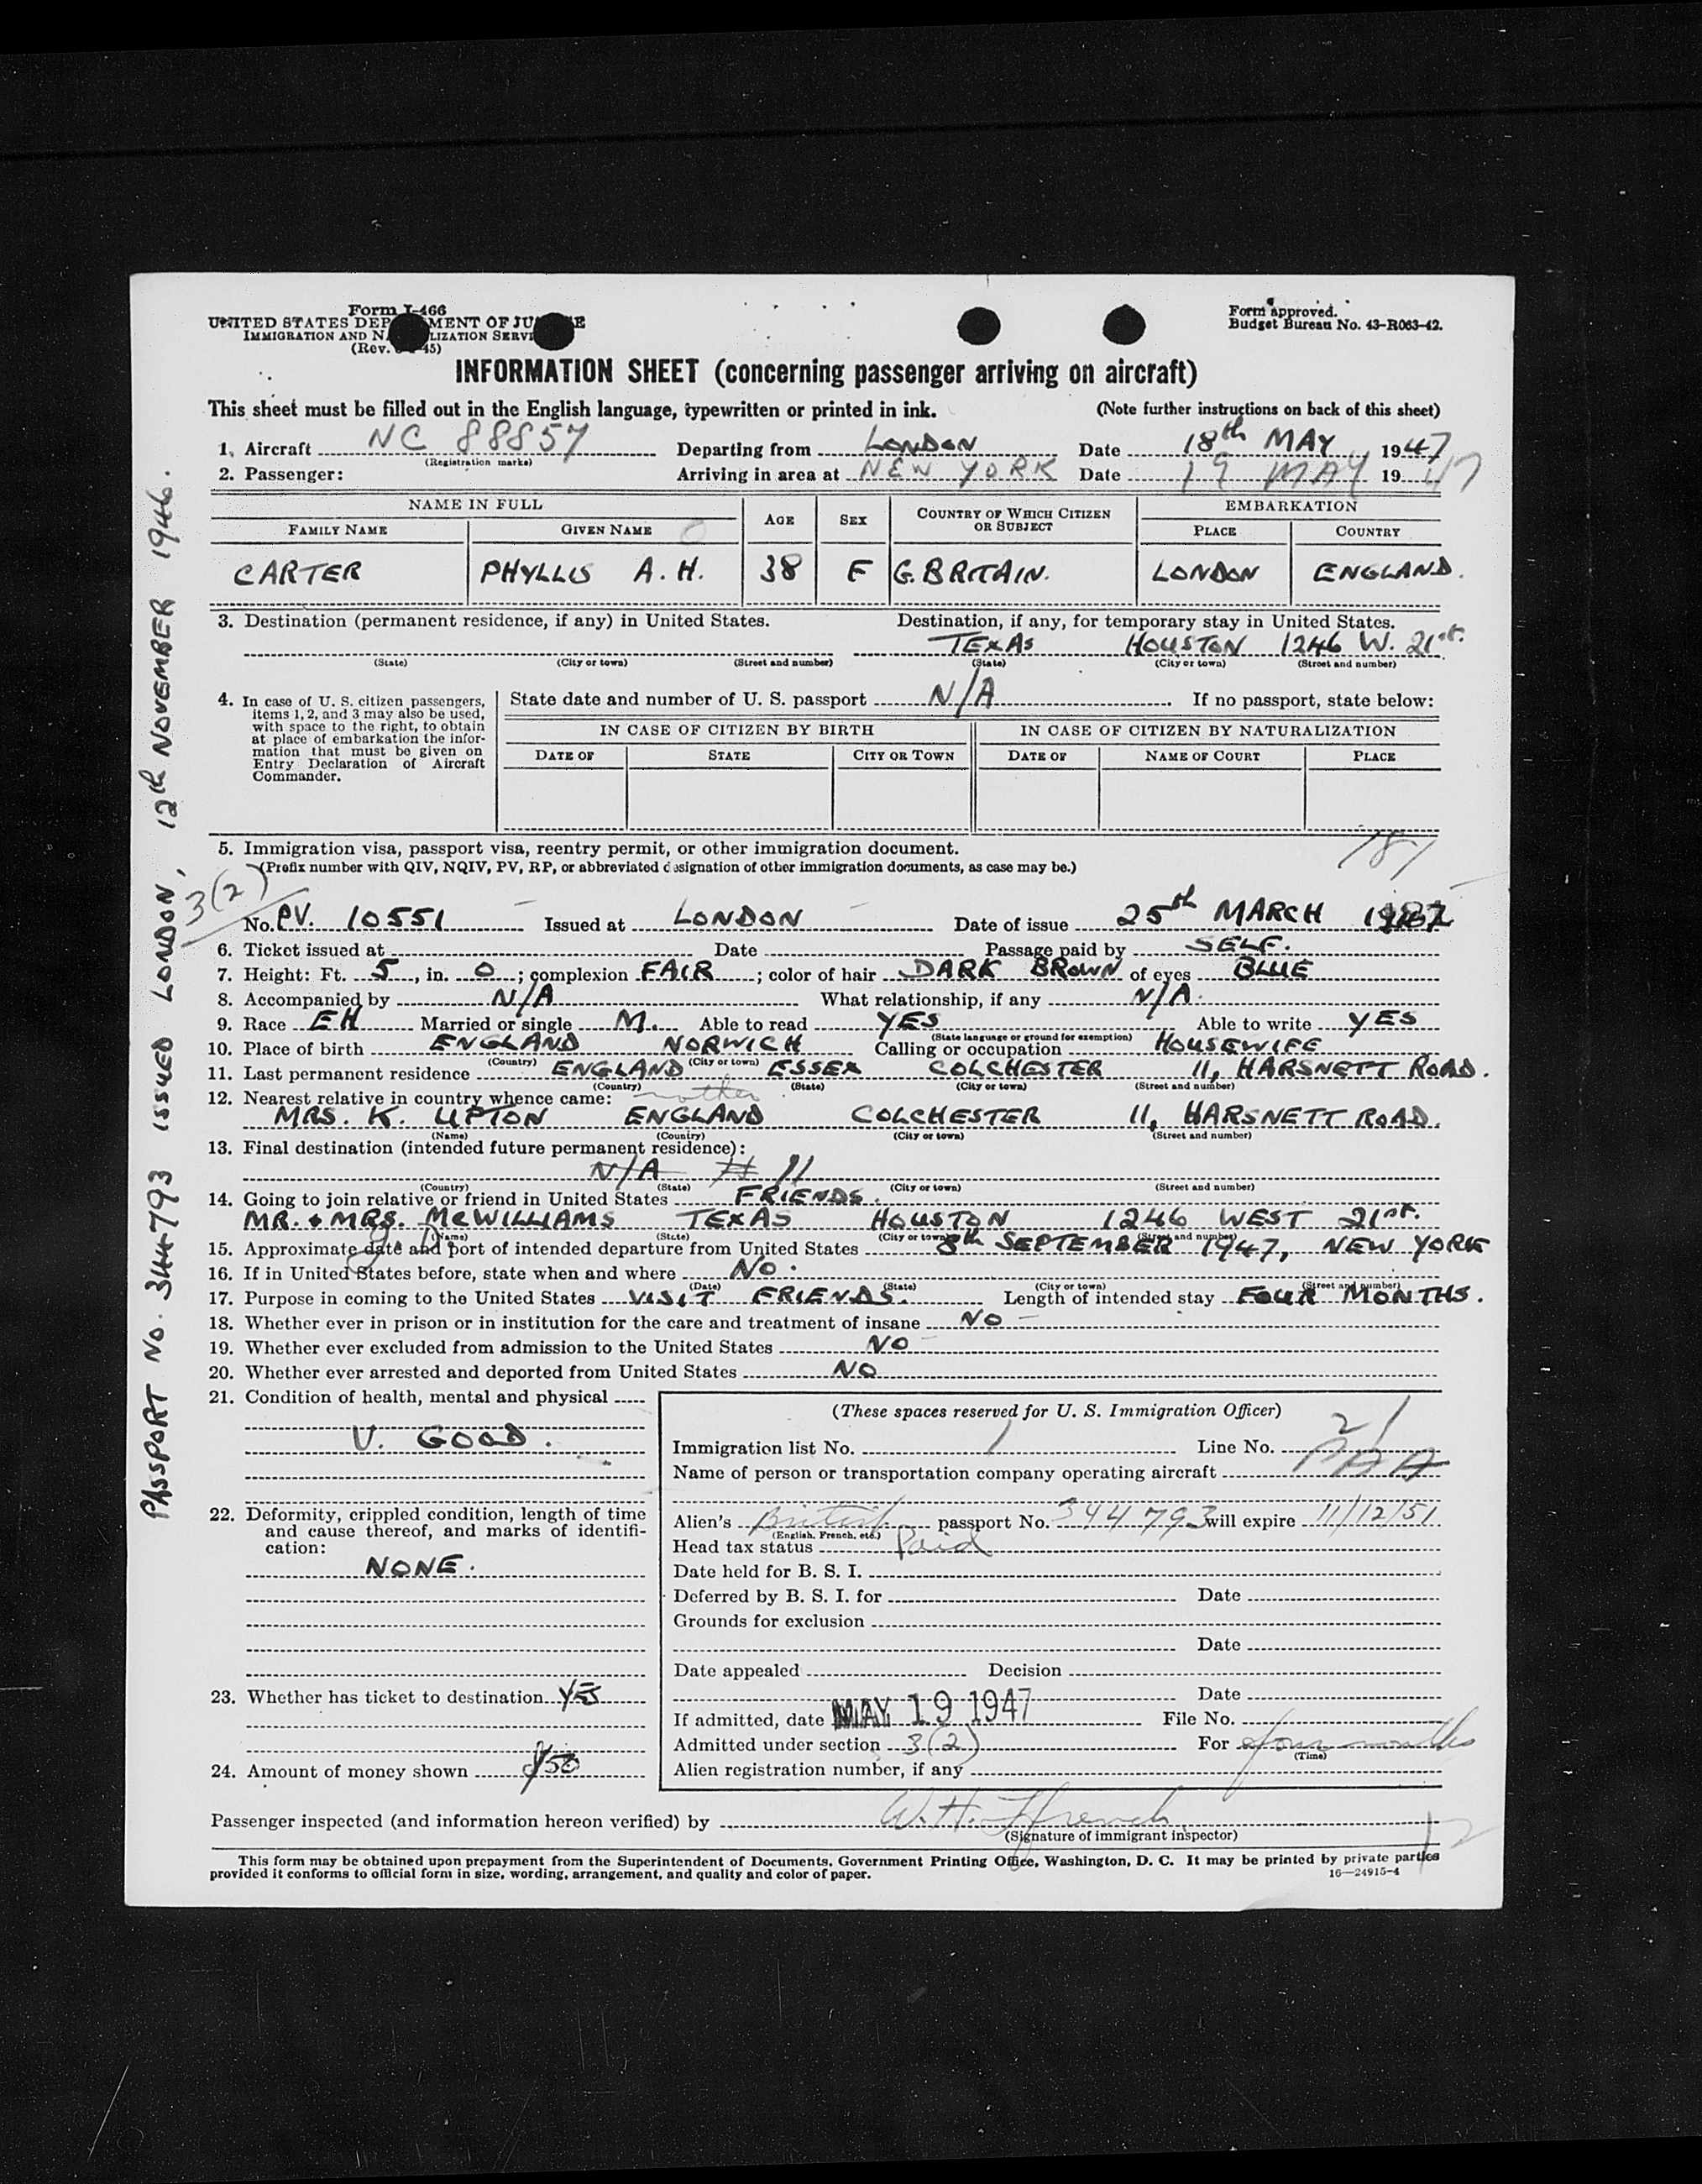 Form I-466
UNITED STATES DEP MENT OF JU E
IMMIGRATION AND N LIZATION SERVI
(Rev. 45)
Form approved.
Budget Bureau No. 43-R063-42.
INFORMATION SHEET (concerning passenger arriving on aircraft)
This sheet must be filled out in the English language, typewritten or printed in ink. (Note further instructions on back of this sheet)
1. Aircraft NC 88857 Departing from LONDON Date 18th MAY 1947
(Registration marks)
2. Passenger: Arriving in area at NEW YORK Date 19 MAY 1947
NAME IN FULL AGE SEX COUNTRY OF WHICH CITIZEN OR SUBJECT EMBARKATION
FAMILY NAME GIVEN NAME PLACE COUNTRY
CARTER PHYLLIS A.H. 38 F G. BRITAIN. LONDON ENGLAND.
3. Destination (permanent residence, if any) in United States. Destination, if any, for temporary stay in United States.
TEXAS HOUSTON 1246 W. 21st.
(State) (City or town) (Street and number) (State) (City or town) (Street and number)
4. In case of U. S. citizen passengers, items 1, 2, and 3 may also be used, with space to the right, to obtain at place of embarkation the information that must be given on Entry Declaration of Aircraft Commander.
State date and number of U. S. passport N/A If no passport, state below:
IN CASE OF CITIZEN BY BIRTH IN CASE OF CITIZEN BY NATURALIZATION
DATE OF STATE CITY OR TOWN DATE OF NAME OF COURT PLACE
5. Immigration visa, passport visa, reentry permit, or other immigration document.
187
(Prefix number with QIV, NQIV, PV, RP, or abbreviated designation of other immigration documents, as case may be.)
3(2)
No. PV. 10551 Issued at LONDON Date of issue 25th MARCH 1947
6. Ticket issued at Date Passage paid by SELF.
7. Height: Ft. 5, in. 0; complexion FAIR; color of hair DARK BROWN of eyes BLUE
8. Accompanied by N/A What relationship, if any N/A.
9. Race EH Married or single M. Able to read YES Able to write YES
(State language or ground for exemption)
10. Place of birth ENGLAND NORWICH Calling or occupation HOUSEWIFE
(Country) (City or town)
11. Last permanent residence ENGLAND ESSEX COLCHESTER 11, HARSNETT ROAD.
(Country) (State) (City or town) (Street and number)
12. Nearest relative in country whence came: mother
MRS. K. UPTON ENGLAND COLCHESTER 11, HARSNETT ROAD.
(Name) (Country) (City or town) (Street and number)
13. Final destination (intended future permanent residence):
N/A # 11
(Country) (State) (City or town) (Street and number)
14. Going to join relative or friend in United States FRIENDS.
MR. & MRS. McWILLIAMS TEXAS HOUSTON 1246 WEST 21st.
(Name) (State) (City or town) (Street and number)
15. Approximate date and port of intended departure from United States 8th SEPTEMBER 1947, NEW YORK
16. If in United States before, state when and where NO.
(Date) (State) (City or town) (Street and number)
17. Purpose in coming to the United States VISIT FRIENDS. Length of intended stay FOUR MONTHS.
18. Whether ever in prison or in institution for the care and treatment of insane NO
19. Whether ever excluded from admission to the United States NO
20. Whether ever arrested and deported from United States NO
21. Condition of health, mental and physical
V. GOOD.
22. Deformity, crippled condition, length of time and cause thereof, and marks of identification:
NONE.
23. Whether has ticket to destination YES
24. Amount of money shown
(These spaces reserved for U. S. Immigration Officer)
Immigration list No. 1 Line No. 21
Name of person or transportation company operating aircraft PAA
Alien's British passport No. 344793 will expire 11/12/51
(English, French, etc.)
Head tax status Paid
Date held for B. S. I.
Deferred by B. S. I. for Date
Grounds for exclusion
Date
Date appealed Decision
Date
If admitted, date MAY 19 1947 File No.
Admitted under section 3(2) For four months
(Time)
Alien registration number, if any
Passenger inspected (and information hereon verified) by W. H. Ffrench
(Signature of immigrant inspector)
12
This form may be obtained upon prepayment from the Superintendent of Documents, Government Printing Office, Washington, D. C. It may be printed by private parties
provided it conforms to official form in size, wording, arrangement, and quality and color of paper. 16—24915-4
PASSPORT No. 344793 ISSUED LONDON, 12th NOVEMBER 1946.